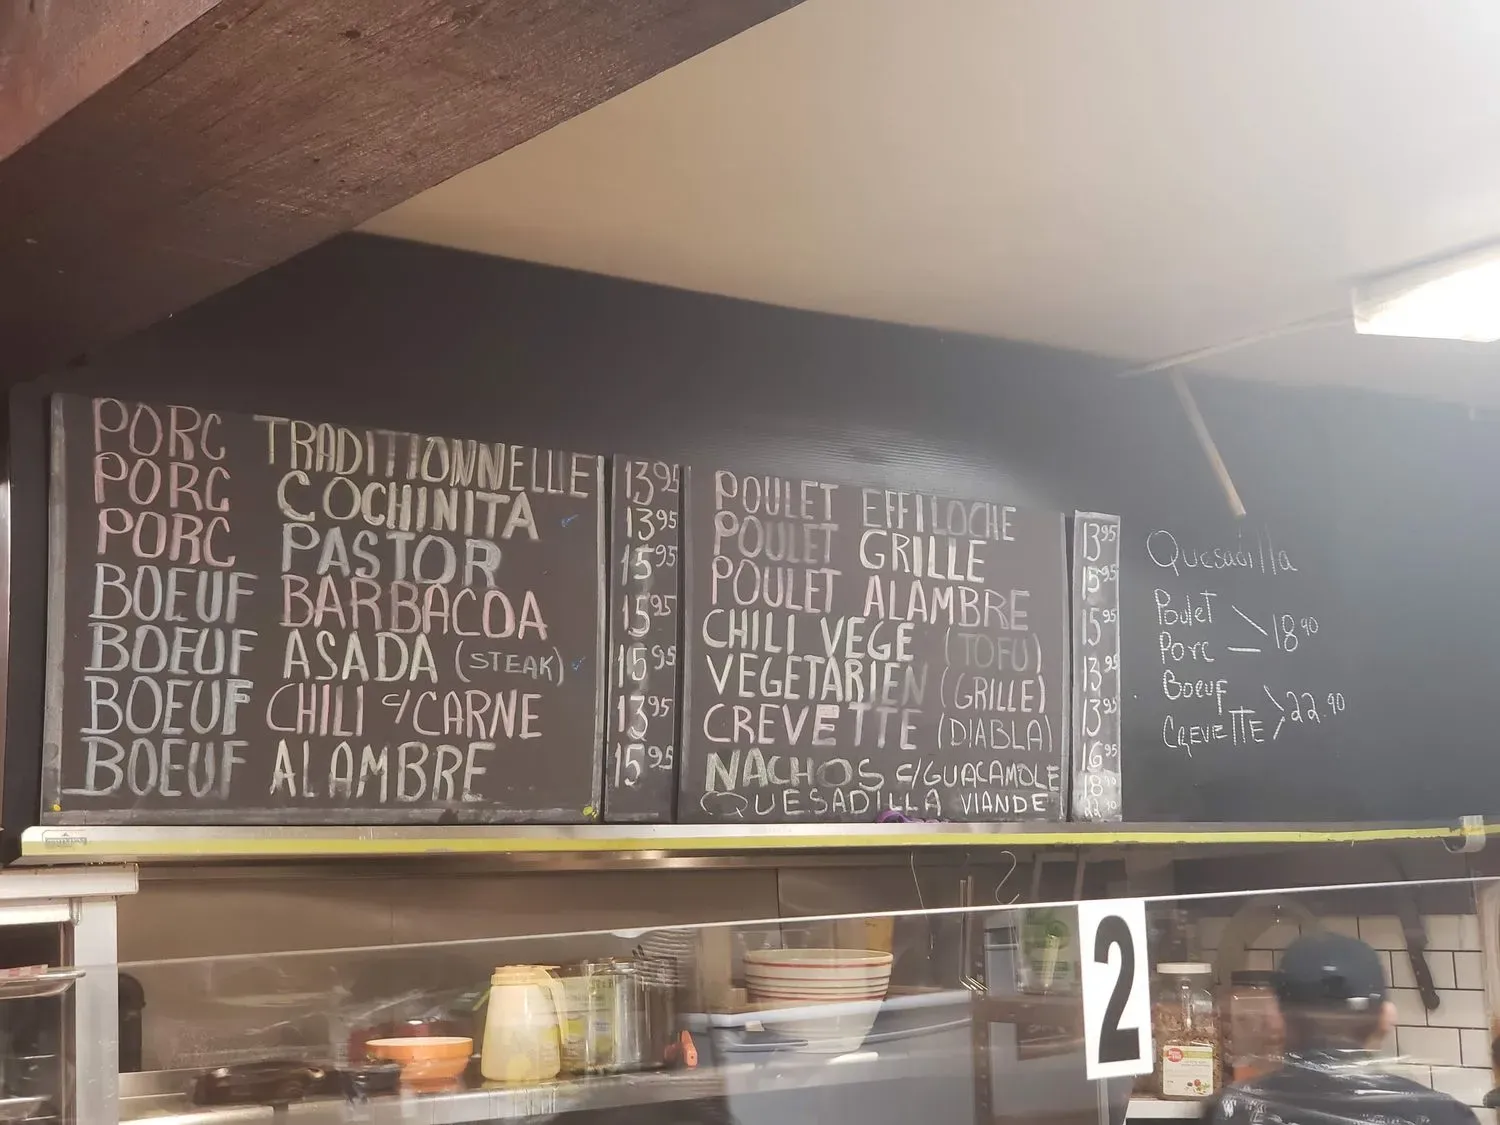 PORC TRADITIONNELLE 13.95
PORC COCHINITA 13.95
PORC PASTOR 15.95
BOEUF BARBACOA 15.95
BOEUF ASADA (STEAK) 15.95
BOEUF CHILI C/CARNE 13.95
BOEUF ALAMBRE 15.95
POULET EFFILOCHE 13.95
POULET GRILLE 15.95
POULET ALAMBRE 15.95
CHILI VEGE (TOFU) 13.95
VEGETARIEN (GRILLE) 13.95
CREVETTE (DIABLA) 16.95
NACHOS C/GUACAMOLE 18.90
QUESADILLA VIANDE 22.90
Quesadilla
Poulet
Porc 18.90
Boeuf
CREVETTE 22.90
2